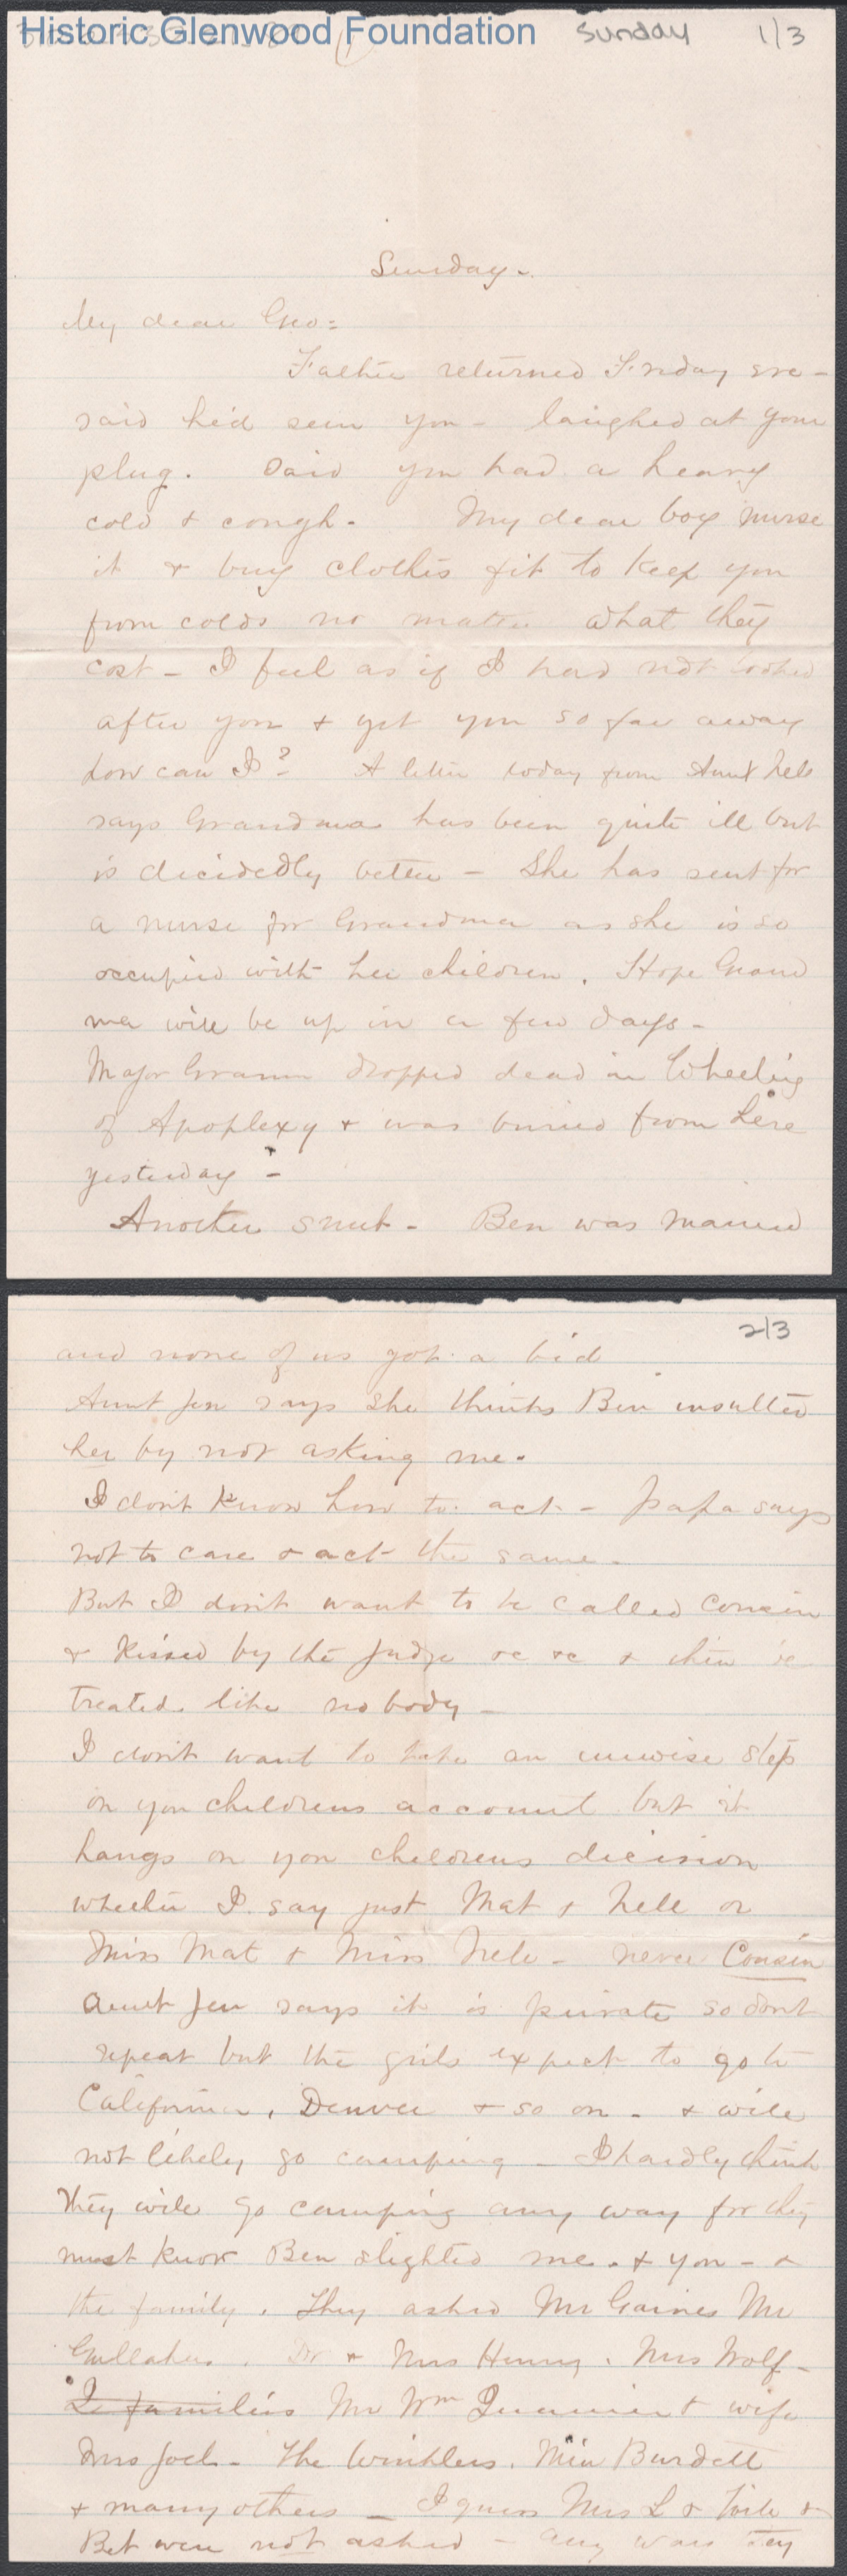 Historic Glenwood Foundation
Sunday 1/3
Sunday.
My dear Geo:
Father returned Friday eve-
said he'd seen you - laughed at your
plug. Said you had a heavy
cold & cough. My dear boy nurse
it & buy clothes fit to keep you
from colds no matter what they
cost - I feel as if I had not looked
after you & yet you so far away
how can I? A letter today from Aunt Nell
says Grandma has been quite ill but
is decidedly better - She has sent for
a nurse for Grandma as she is so
occupied with her children. Hope Grand
ma will be up in a few days -
Major dropped dead in Wheeling
of Apoplexy & was buried from here
yesterday -
Another snub - Ben was married
2/3
and none of us got a bid
Aunt Jen says she thinks Ben insulted
her by not asking me.
I don't know how to act - Papa says
not to care & act the same.
But I don't want to be called Cousin
& kissed by the Judge &c &c & then be
treated like nobody -
I don't want to take an unwise step
on you childrens account but it
hangs on you childrens decision
whether I say just Mat & Nell or
Miss Mat & Miss Nell - never Cousin
Aunt Jen says it is private so dont
repeat but the girls expect to go to
California, Denver & so on - & will
not likely go camping - I hardly think
they will go camping any way for they
must know Ben slighted me - & you - &
the family. They asked Mr Gaines Mr
Gallaher, Dr & Mrs Henry, Mrs Wolf -
families Mr Wm & wife
Mrs Joel - The Winklers, Miss Burdett
& many others - I guess Mrs L & &
Bet were not asked - any way